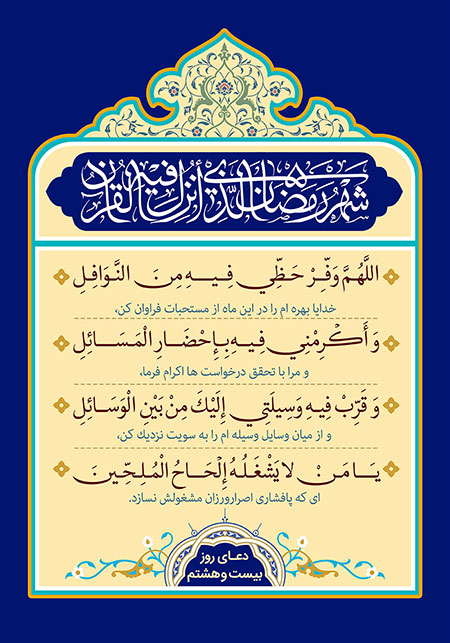 شهر رمضان الذي أنزل فيه القرآن
اللهُمَّ وَفِّرْ حَظِّي فِيهِ مِنَ النَّوَافِلِ
خدایا بهره ام را در این ماه از مستحبات فراوان کن،
وَ أَكْرِمْنِي فِيهِ بِإِحْضَارِ الْمَسَائِلِ
و مرا با تحقق درخواست ها اکرام فرما،
وَ قَرِّبْ فِيهِ وَسِيلَتِي إِلَيْكَ مِنْ بَيْنِ الْوَسَائِلِ
و از میان وسایل وسیله ام را به سویت نزدیك کن،
يَا مَنْ لا يَشْغَلُهُ إِلْحَاحُ الْمُلِحِّينَ
ای که پافشاری اصرارورزان مشغولش نسازد.
دعای روز
بیست وهشتم